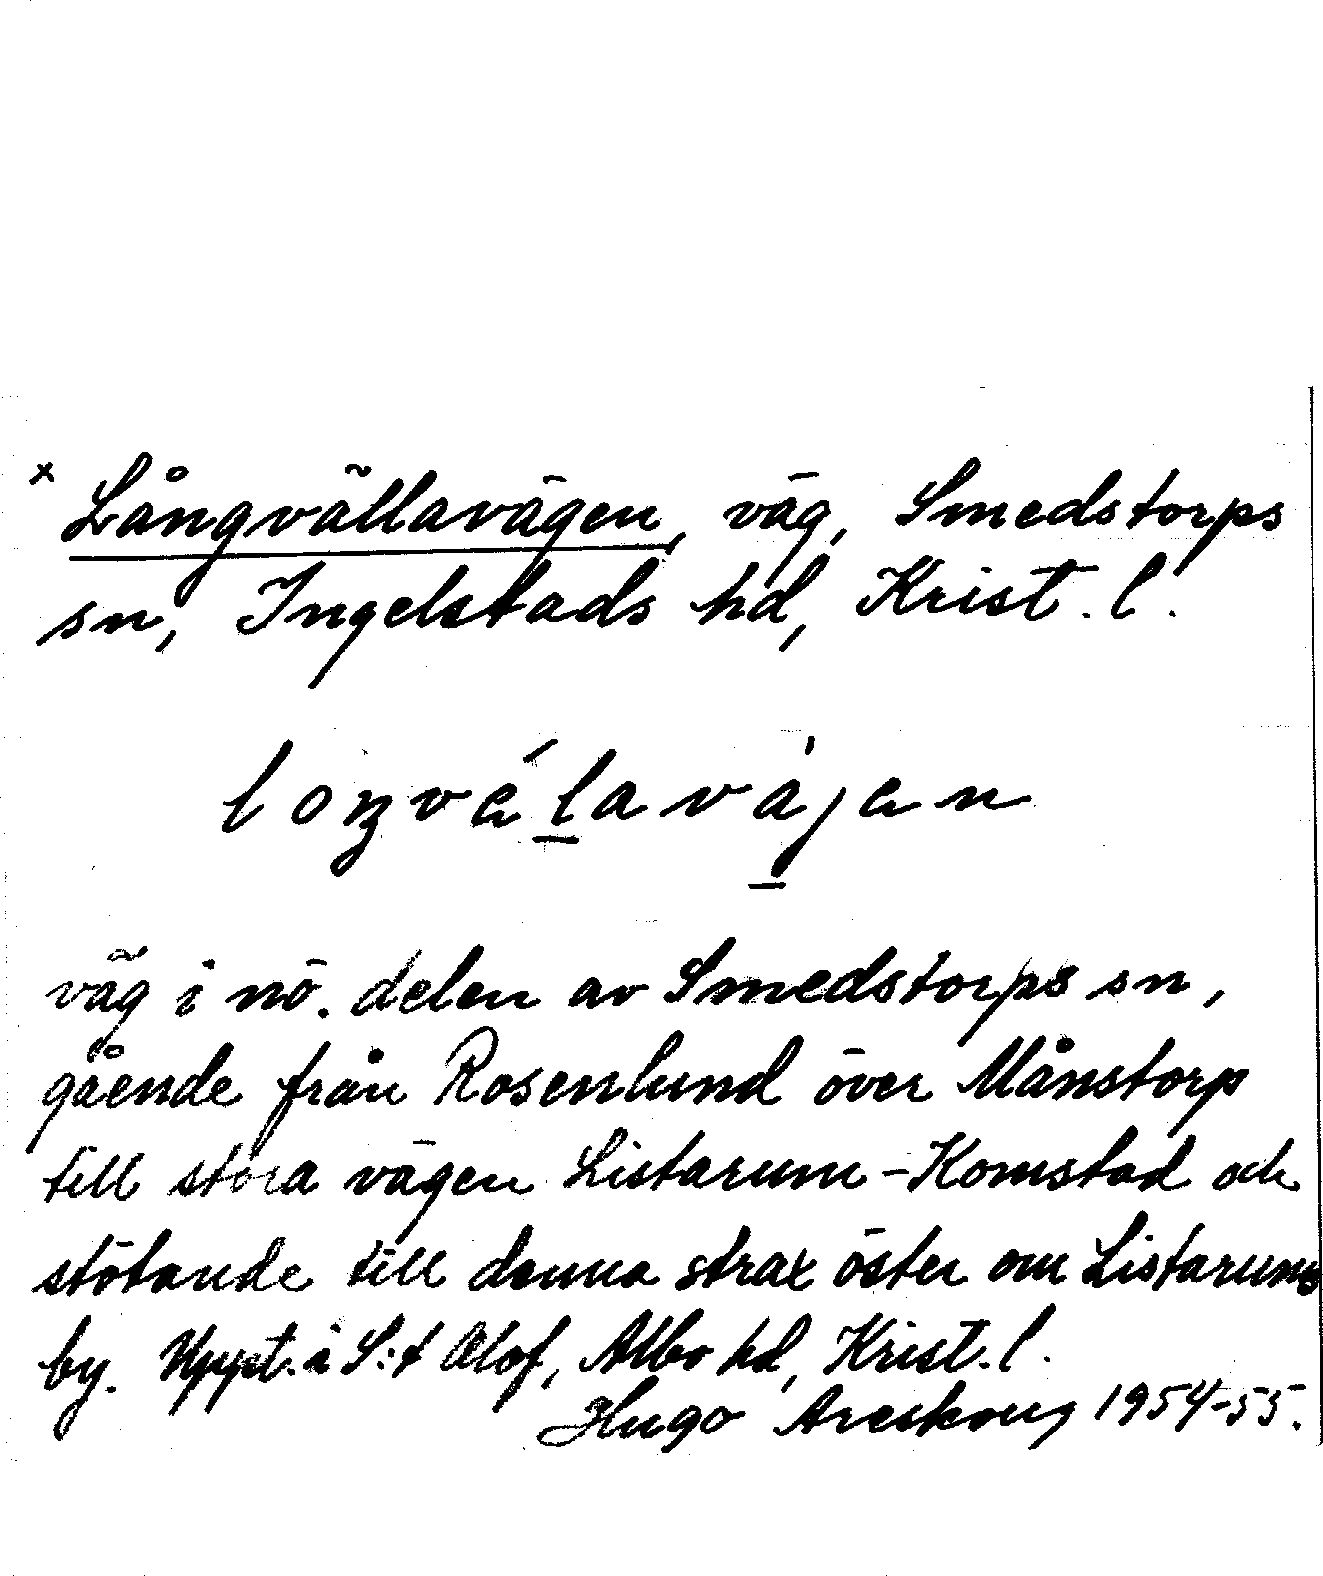 x Långvällavägen, väg, Smedstorps
sn, Ingelstads hd, Krist. l.
väg i nö. delen av Smedstorps sn,
gående från Rosenlund över Månstorp
till stora vägen Listarum–Komstad och
stötande till denna strax öster om Listarums
by. Uppt. i S:t Olof, Albo hd, Krist. l.
Hugo Areskoug 1954-55.